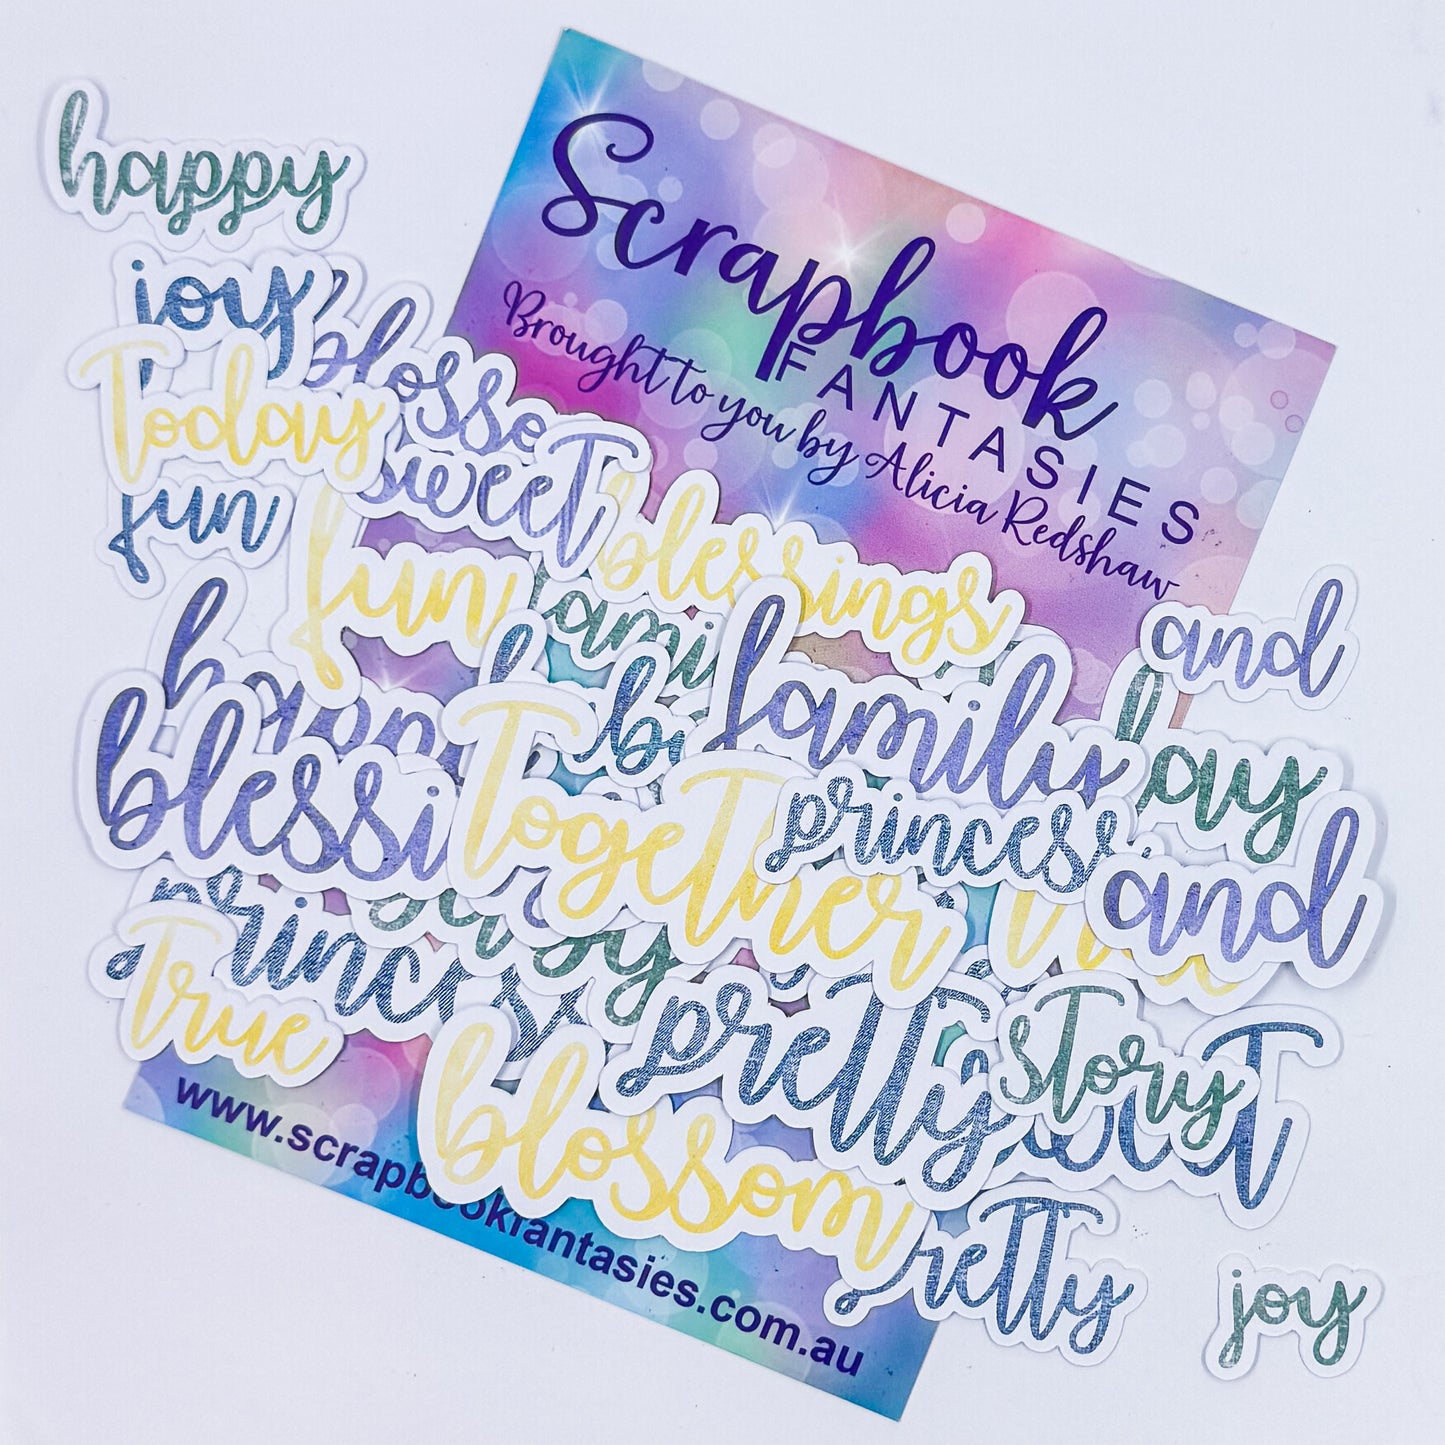 happy
Scrapbook
FANTASIES
Brought to you by Alicia Redshaw
joy
blosso
Today
sweet
fun
blessings
fun
fami
and
happ
family
day
blessi
Together
princess
and
princess
True
pretty
story
sweet
blossom
www.scrapbookfantasies.com.au
pretty
joy